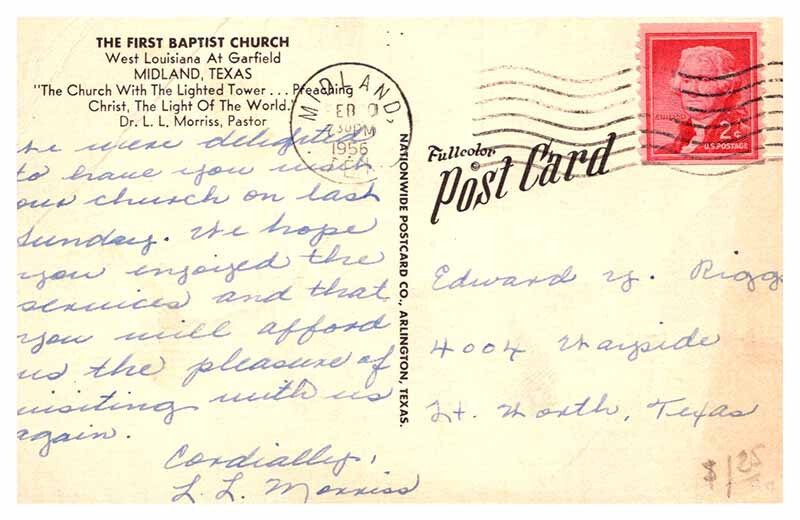 THE FIRST BAPTIST CHURCH
West Louisiana At Garfield
MIDLAND, TEXAS
"The Church With The Lighted Tower . . . Preaching
Christ, The Light Of The World."
Dr. L. L. Morriss, Pastor
We were delighted
to have you visit
our church on last
Sunday. We hope
you enjoyed the
services and that
you will afford
us the pleasure of
visiting with us
again.
Cordially,
L. L. Morriss
MIDLAND,
30 PM
1956
TEX
NATIONWIDE POSTCARD CO., ARLINGTON, TEXAS.
Fullcolor
Post Card
2¢
U.S. POSTAGE
Edward Y. Rigg
4004 Wayside
Ft. Worth, Texas
$1.25